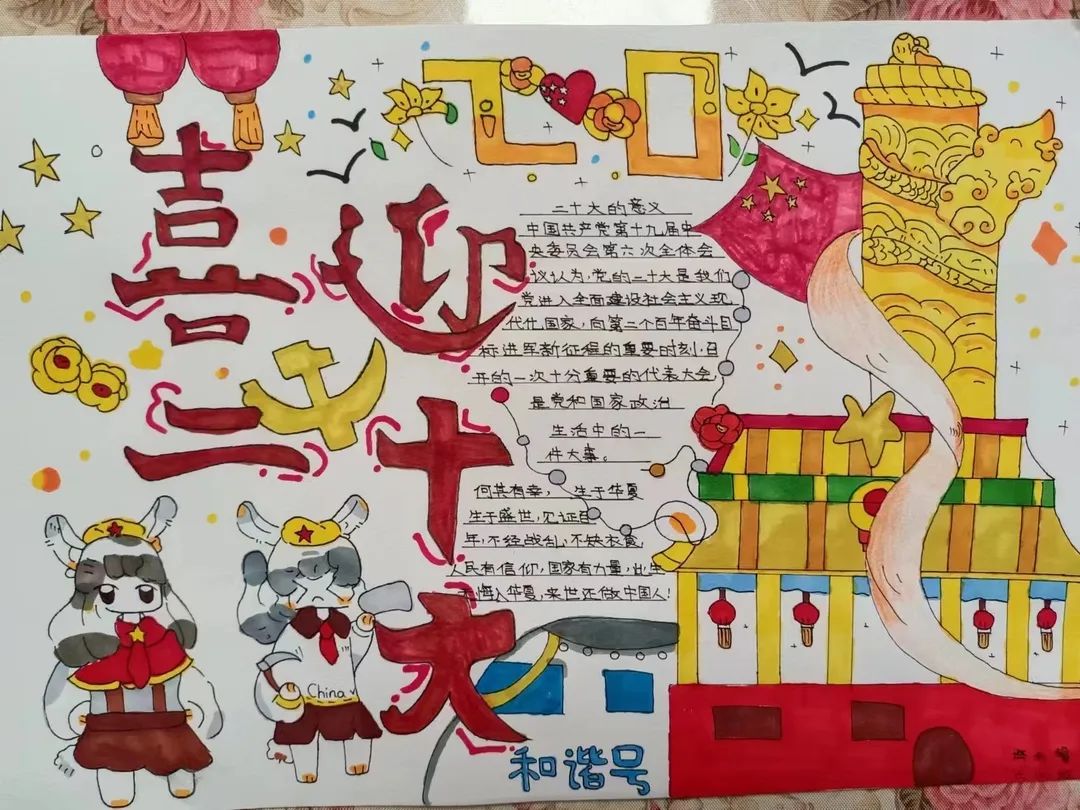 喜迎
二十大
20
二十大的意义
中国共产党第十九届中
央委员会第六次全体会
议认为,党的二十大是我们
党进入全面建设社会主义现
代化国家,向第二个百年奋斗目
标进军新征程的重要时刻召
开的一次十分重要的代表大会
是党和国家政治
生活中的一
件大事。
何其有幸,生于华夏
生于盛世,见证百
年,不经战乱,不缺衣食
人民有信仰,国家有力量,此生
无悔入华夏,来世还做中国人!
China
和谐号